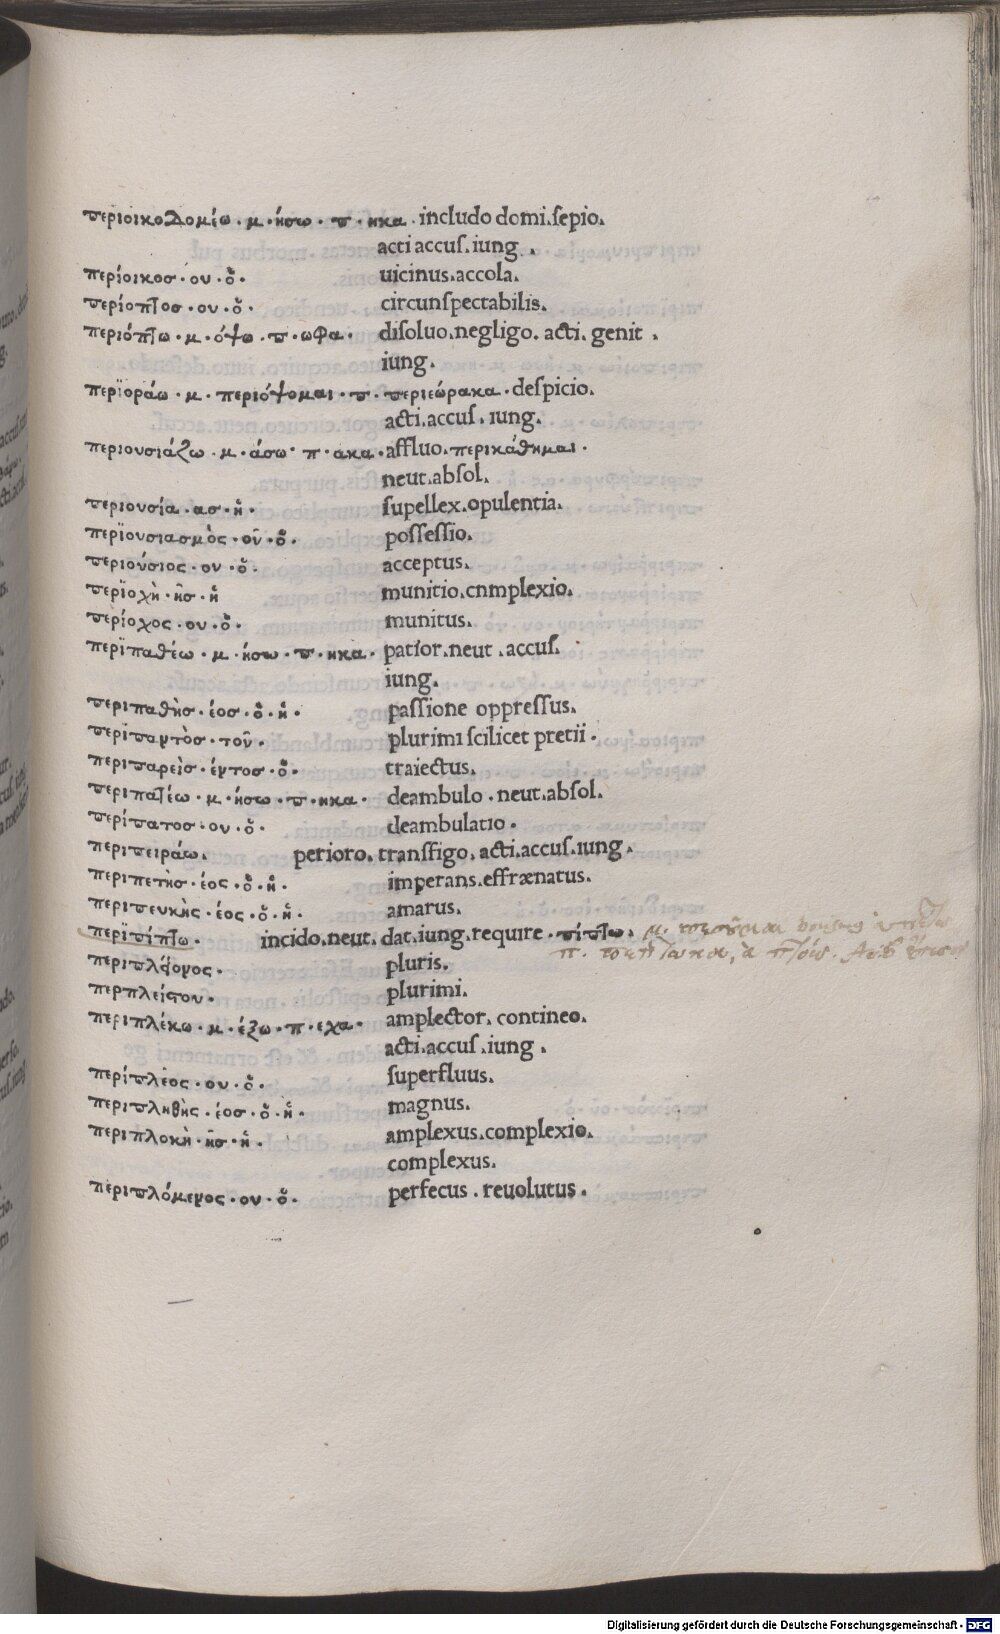 περιοικοδομέω · μ · ήσω · π · ηκα · includo domi.ſepio.
acti accuſ.iung .
περίοικοσ · ου · ὁ · uicinus.accola.
περίοπτοσ · ου · ὁ · circunſpectabilis.
περιόπτω · μ · όψω · π · ωφα · diſoluo.negligo. acti. genit .
iung.
περϊοράω · μ · περιόψομαι · π · περιεώρακα · deſpicio.
acti.accuſ.iung.
περιουσιάζω · μ · άσω · π · ακα · affluo.περικάθημαι ·
neut.abſol.
περιουσία · ασ · ἡ · ſupellex.opulentia.
περϊουσιασμὸς · οῦ · ὁ · poſſeſſio.
περιούσιος · ου · ὁ · acceptus.
περϊοχὴ · ῆσ · ἡ munitio.cnmplexio.
περίοχος · ου · ὁ · munitus.
περϊπαθέω · μ · ήσω · π · ηκα · patior.neut .accuſ.
iung.
περιπαθὴσ · έοσ · ὁ · ἡ · paſſione oppreſſus.
περιπαντὸσ · τοῦ · plurimi ſcilicet pretii ·
περιπαρεὶσ · έντοσ · ὁ · traiectus.
περιπατέω · μ · ήσω · π · ηκα · deambulo · neut.abſol.
περίπατοσ · ου · ὁ · deambulatio ·
περιπειράω. perioro. tranſfigo. acti.accuſ.iung .
περιπετὴσ · έος · ὁ · ἡ · imperans.effrænatus.
περιπευκὴς · έος · ὁ · ἡ · amarus.
περϊπίπτω · incido.neut. dat.iung.require · πίπτω. μ.
π.
pluris.
περπλείστου · plurimi.
περιπλέκω · μ · έξω · π · εχα · amplector. contineo.
acti.accuſ.iung .
περίπλεος · ου · ὁ · ſuperfluus.
περιπληθὴς · έοσ · ὁ · ἡ · magnus.
περιπλοκὴ · ῆσ · ἡ · amplexus.complexio.
complexus.
περιπλόμενος · ου · ὁ · perfecus . reuolutus .
Digitalisierung gefördert durch die Deutsche Forschungsgemeinschaft - DFG